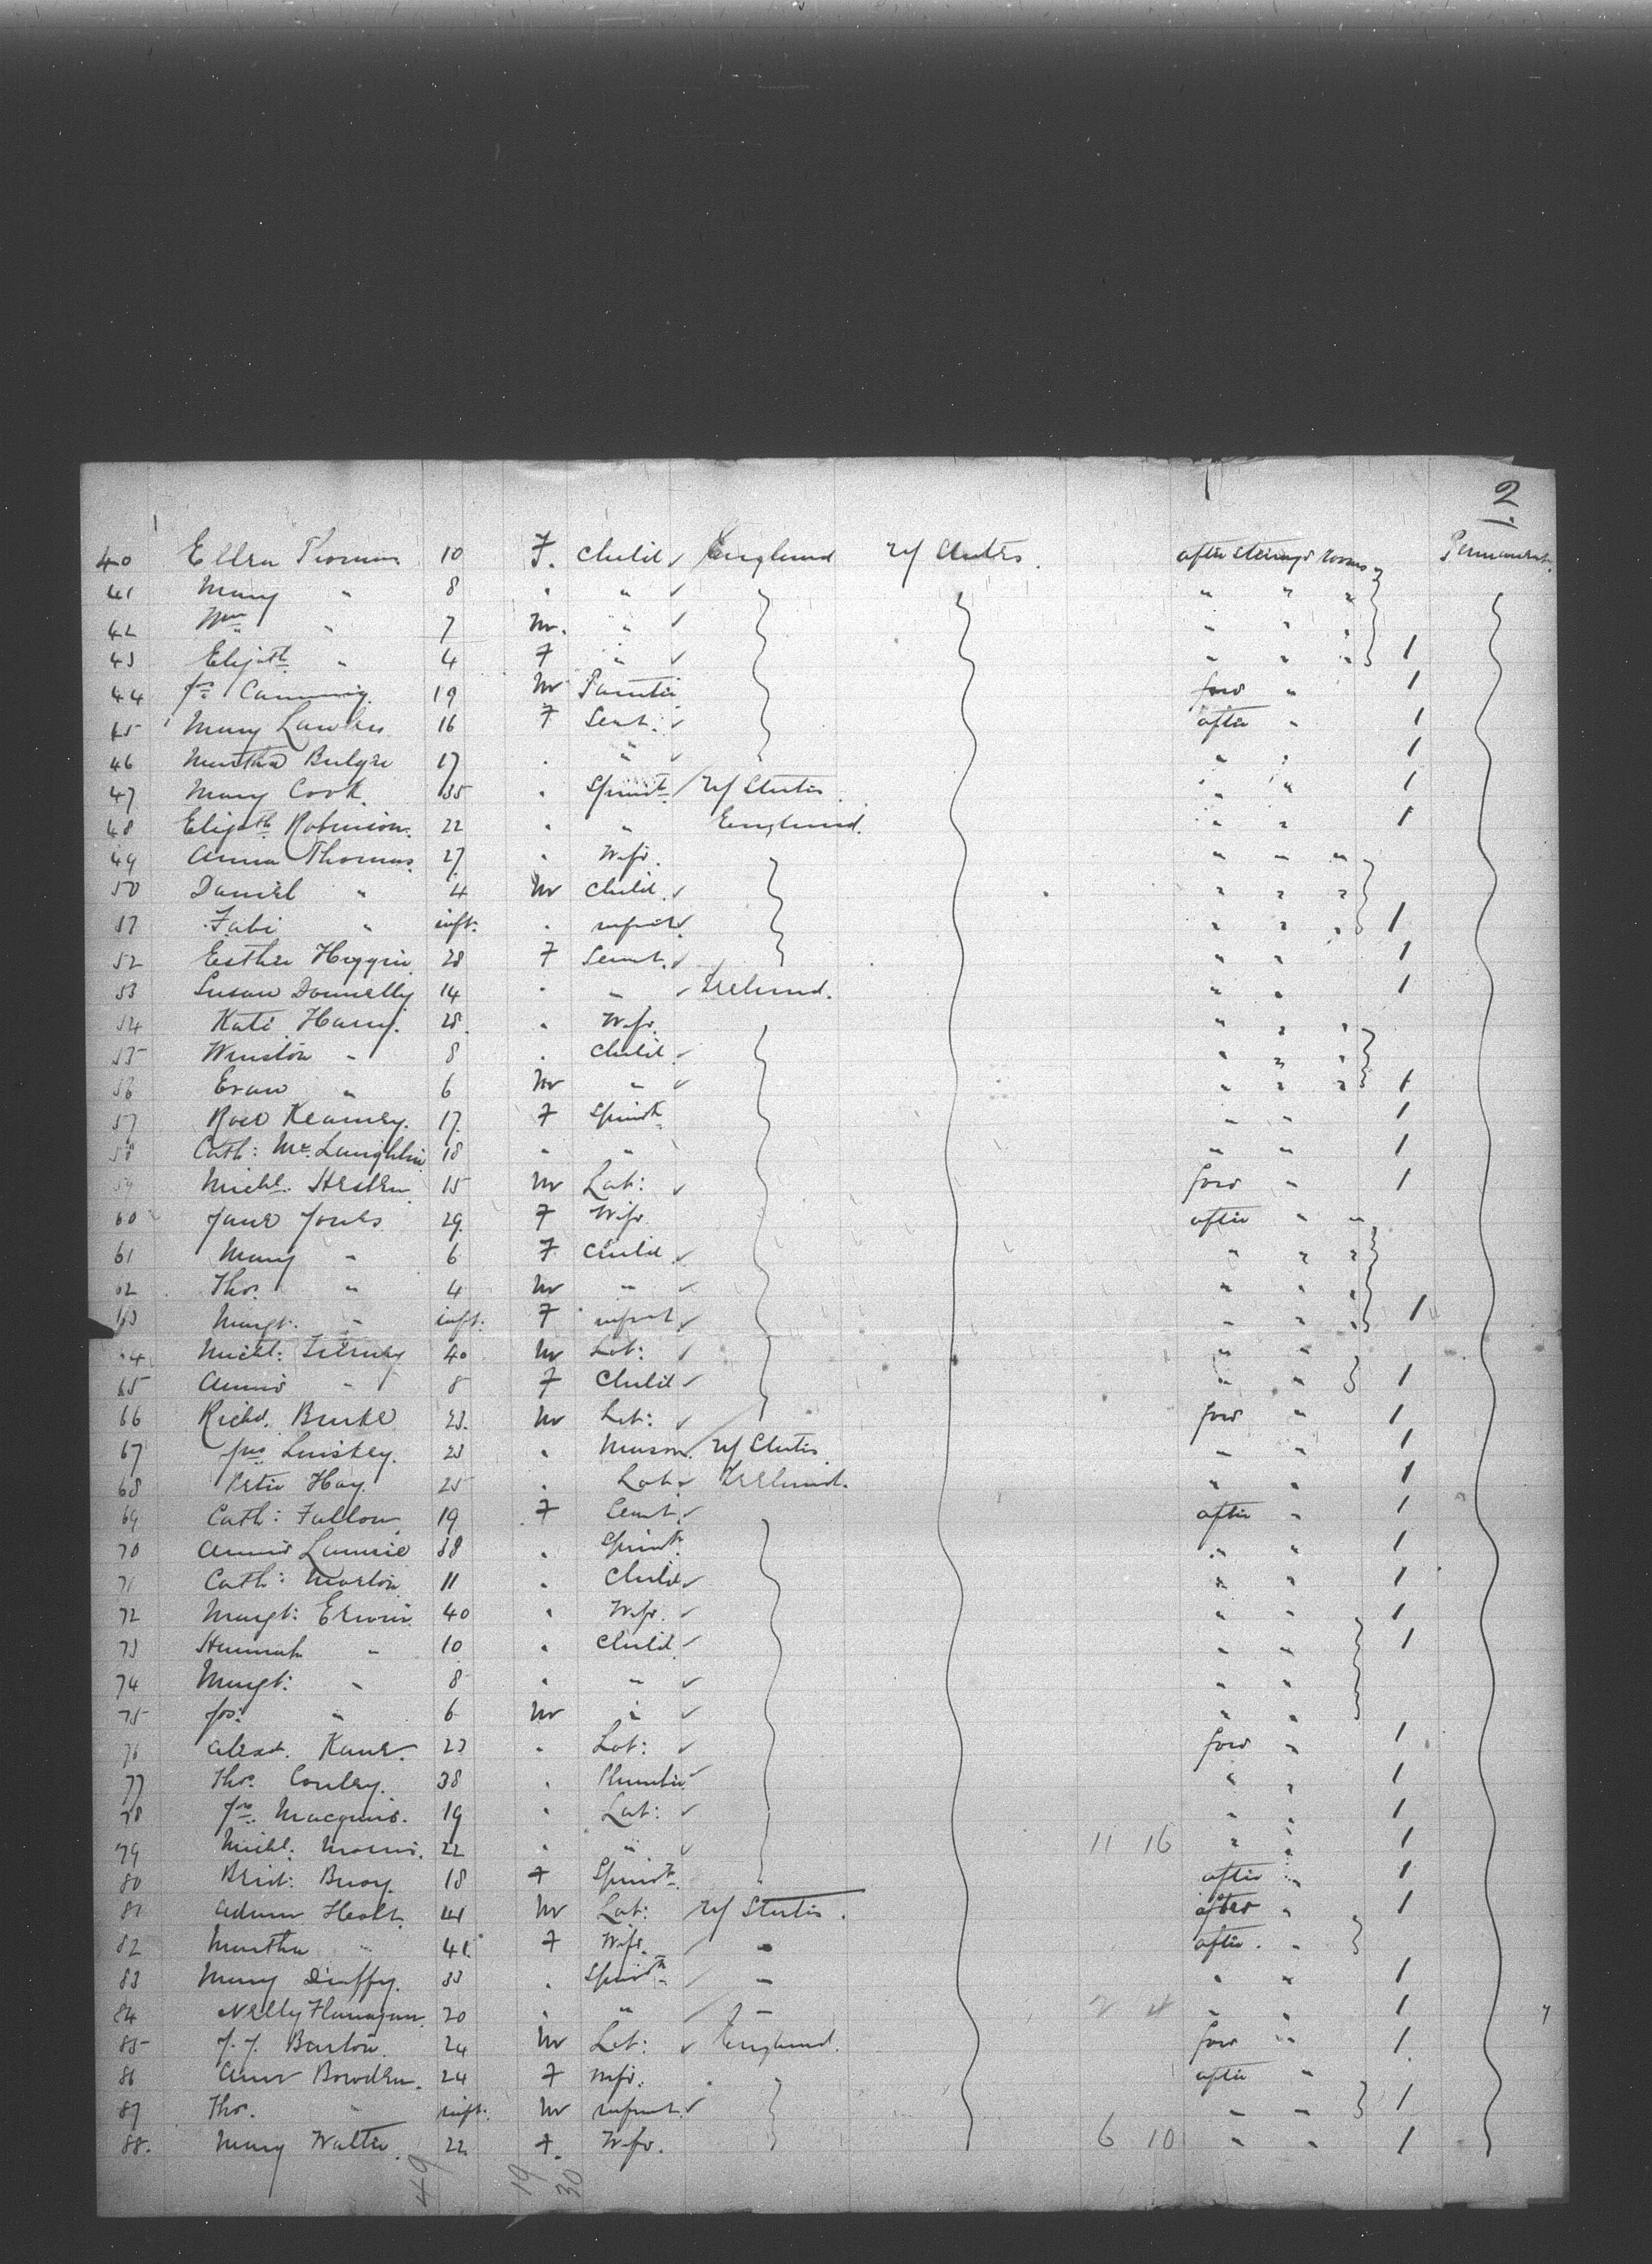 2
40 Ellen Thomas 10 F. Child ✓ England U/ States. after steerage rooms Permanent.
41 Mary " 8 " " ✓ " " "
42 Wm " 7 M. " ✓ " " "
43 Elizath " 4 F " ✓ " " " 1
44 Jas Canning. 19 M Painter ford " 1
45 Mary Lawless 16 F Servt. ✓ after " 1
46 Martha Bulgre 17 " " ✓ " " 1
47 Mary Cook. 35 " Spinstr. U/ States. " " 1
48 Elizath Robinson. 22 " " England. " " 1
49 Anna Thomas. 27. " Wife. " " "
50 Daniel " 4 M Child. ✓ " " "
51 " inft. " infant ✓ " " " 1
52 Esther Higgin 28 F Servt. ✓ " " 1
53 Susan Donnelly 14 " " ✓ Ireland. " " 1
54 Kate Harry. 28. " Wife. " " "
55 Winston " 8 " Child ✓ " " "
56 Evan " 6 M " ✓ " " " 1
57 Rose Kearney. 17. F Spinstr " " 1
58 Cath: McLaughlin 18 " " " " 1
59 Michl. Hesten 15 M Lab: ✓ ford " 1
60 Jane Jones 29. F Wife after " "
61 Mary " 6 F Child ✓ " " "
62 Thos. " 4 M " ✓ " " "
63 Margt. " inft. F infant ✓ " " " 1
64 Michl: Tierney 40 M Lab: ✓ " "
65 Annie " 8 F Child ✓ " " 1
66 Richd. Burke 23. M Lab: ✓ ford " 1
67 Jno Linskey. 23 " Mason U/ States " " 1
68 Peter Hay. 25 " Lab ✓ Ireland. " " 1
69 Cath: Fallow 19 F Servt. ✓ after " 1
70 Annie Lammie 38 " Spinstr. " " 1
71 Cath: Morton 11 " Child ✓ " " 1
72 Margt: Erwin 40 " Wife. ✓ " " 1
73 Hannah " 10 " Child ✓ " " 1
74 Margt: " 8 " " ✓ " "
75 Jos: " 6 M " ✓ " "
76 Alexd. Kane. 23 " Lab: ✓ ford " 1
77 Thos. Conley. 38 " Plumber ✓ " " 1
78 Jno. Macquire. 19 " Lab: ✓ " " 1
79 Michl. Morris. 22 " " ✓ 11 16 " " 1
80 Bridt: Buoy. 18 F Spinstr. after " 1
81 Adam Healt 41 M Lab: U/ States. after " 1
82 Martha " 41. F Wife. ✓ " after. "
83 Mary Duffy. 33 " Spinstr ✓ " " " 1
84 Nelly Flanagan. 20 " " " 2 4 " " 1
85 J. J. Barton. 24 M Lab: ✓ England. ford " 1
86 Ann Bowden. 24 F Wife. after "
87 Thos. " inft. M infant. ✓ " " 1
88. Mary Walter. 22 F. Wife. 6 10 " " 1
49 19 30